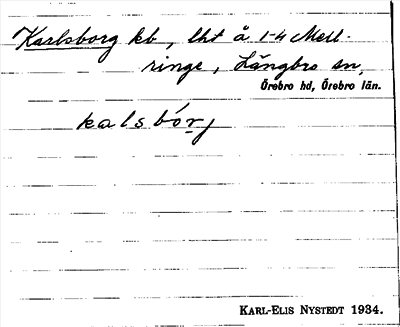 Karlsborg kb, lht å 1-4 Mell-
ringe, Längbro sn,
Örebro hd, Örebro län.
kalsbórj
KARL-ELIS NYSTEDT 1934.